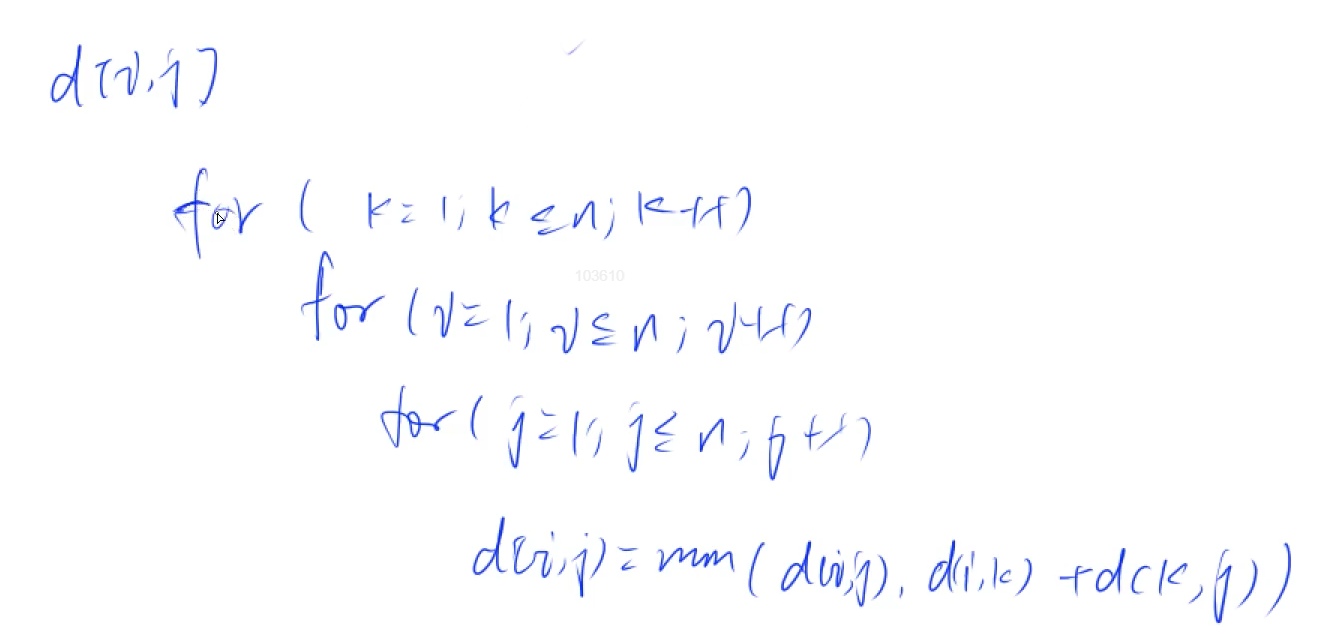 d[i,j]
for ( k=1; k≤n; k++)
103610
for (i=1; i≤n; i++)
for( j=1; j≤n; j++)
d(i,j)=min(d(i,j), d(i,k) +d(k,j))